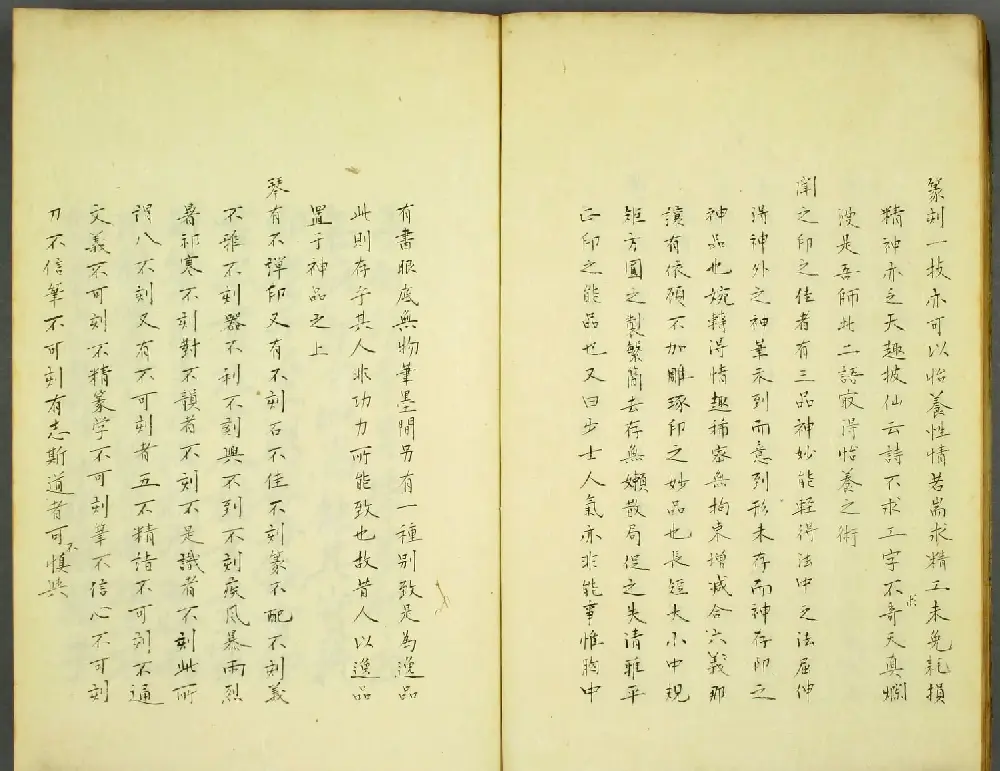 篆刻一技亦可以怡養性情若耑求精工未免耗損
精神亦乏天趣披仙云詩不求工字不奇天真爛
漫是吾師此二語㝡得怡養之術
聞之印之佳者有三品神妙能輕得法中之法屈伸
得神外之神筆未到而意到形未存而神存印之
神品也婉轉得情趣稀密無拘束增減合六義那
讓有依顧不加雕琢印之妙品也長短大小中規
矩方圓之製繁簡去存無嬾散局促之失清雅平
正印之能品也又曰少士人氣亦非能事惟胸中
有書眼底無物筆墨間另有一種別致是為逸品
此則存乎其人非功力所能致也故昔人以逸品
置于神品之上
琴有不彈印又有不刻石不佳不刻篆不配不刻義
不雅不刻器不利不刻興不到不刻疾風暴雨烈
暑祁寒不刻對不韻者不刻不是識者不刻此所
謂八不刻又有不可刻者五不精詣不可刻不通
文義不可刻不精篆学不可刻筆不信心不可刻
刀不信筆不可刻有志斯道者可不慎與